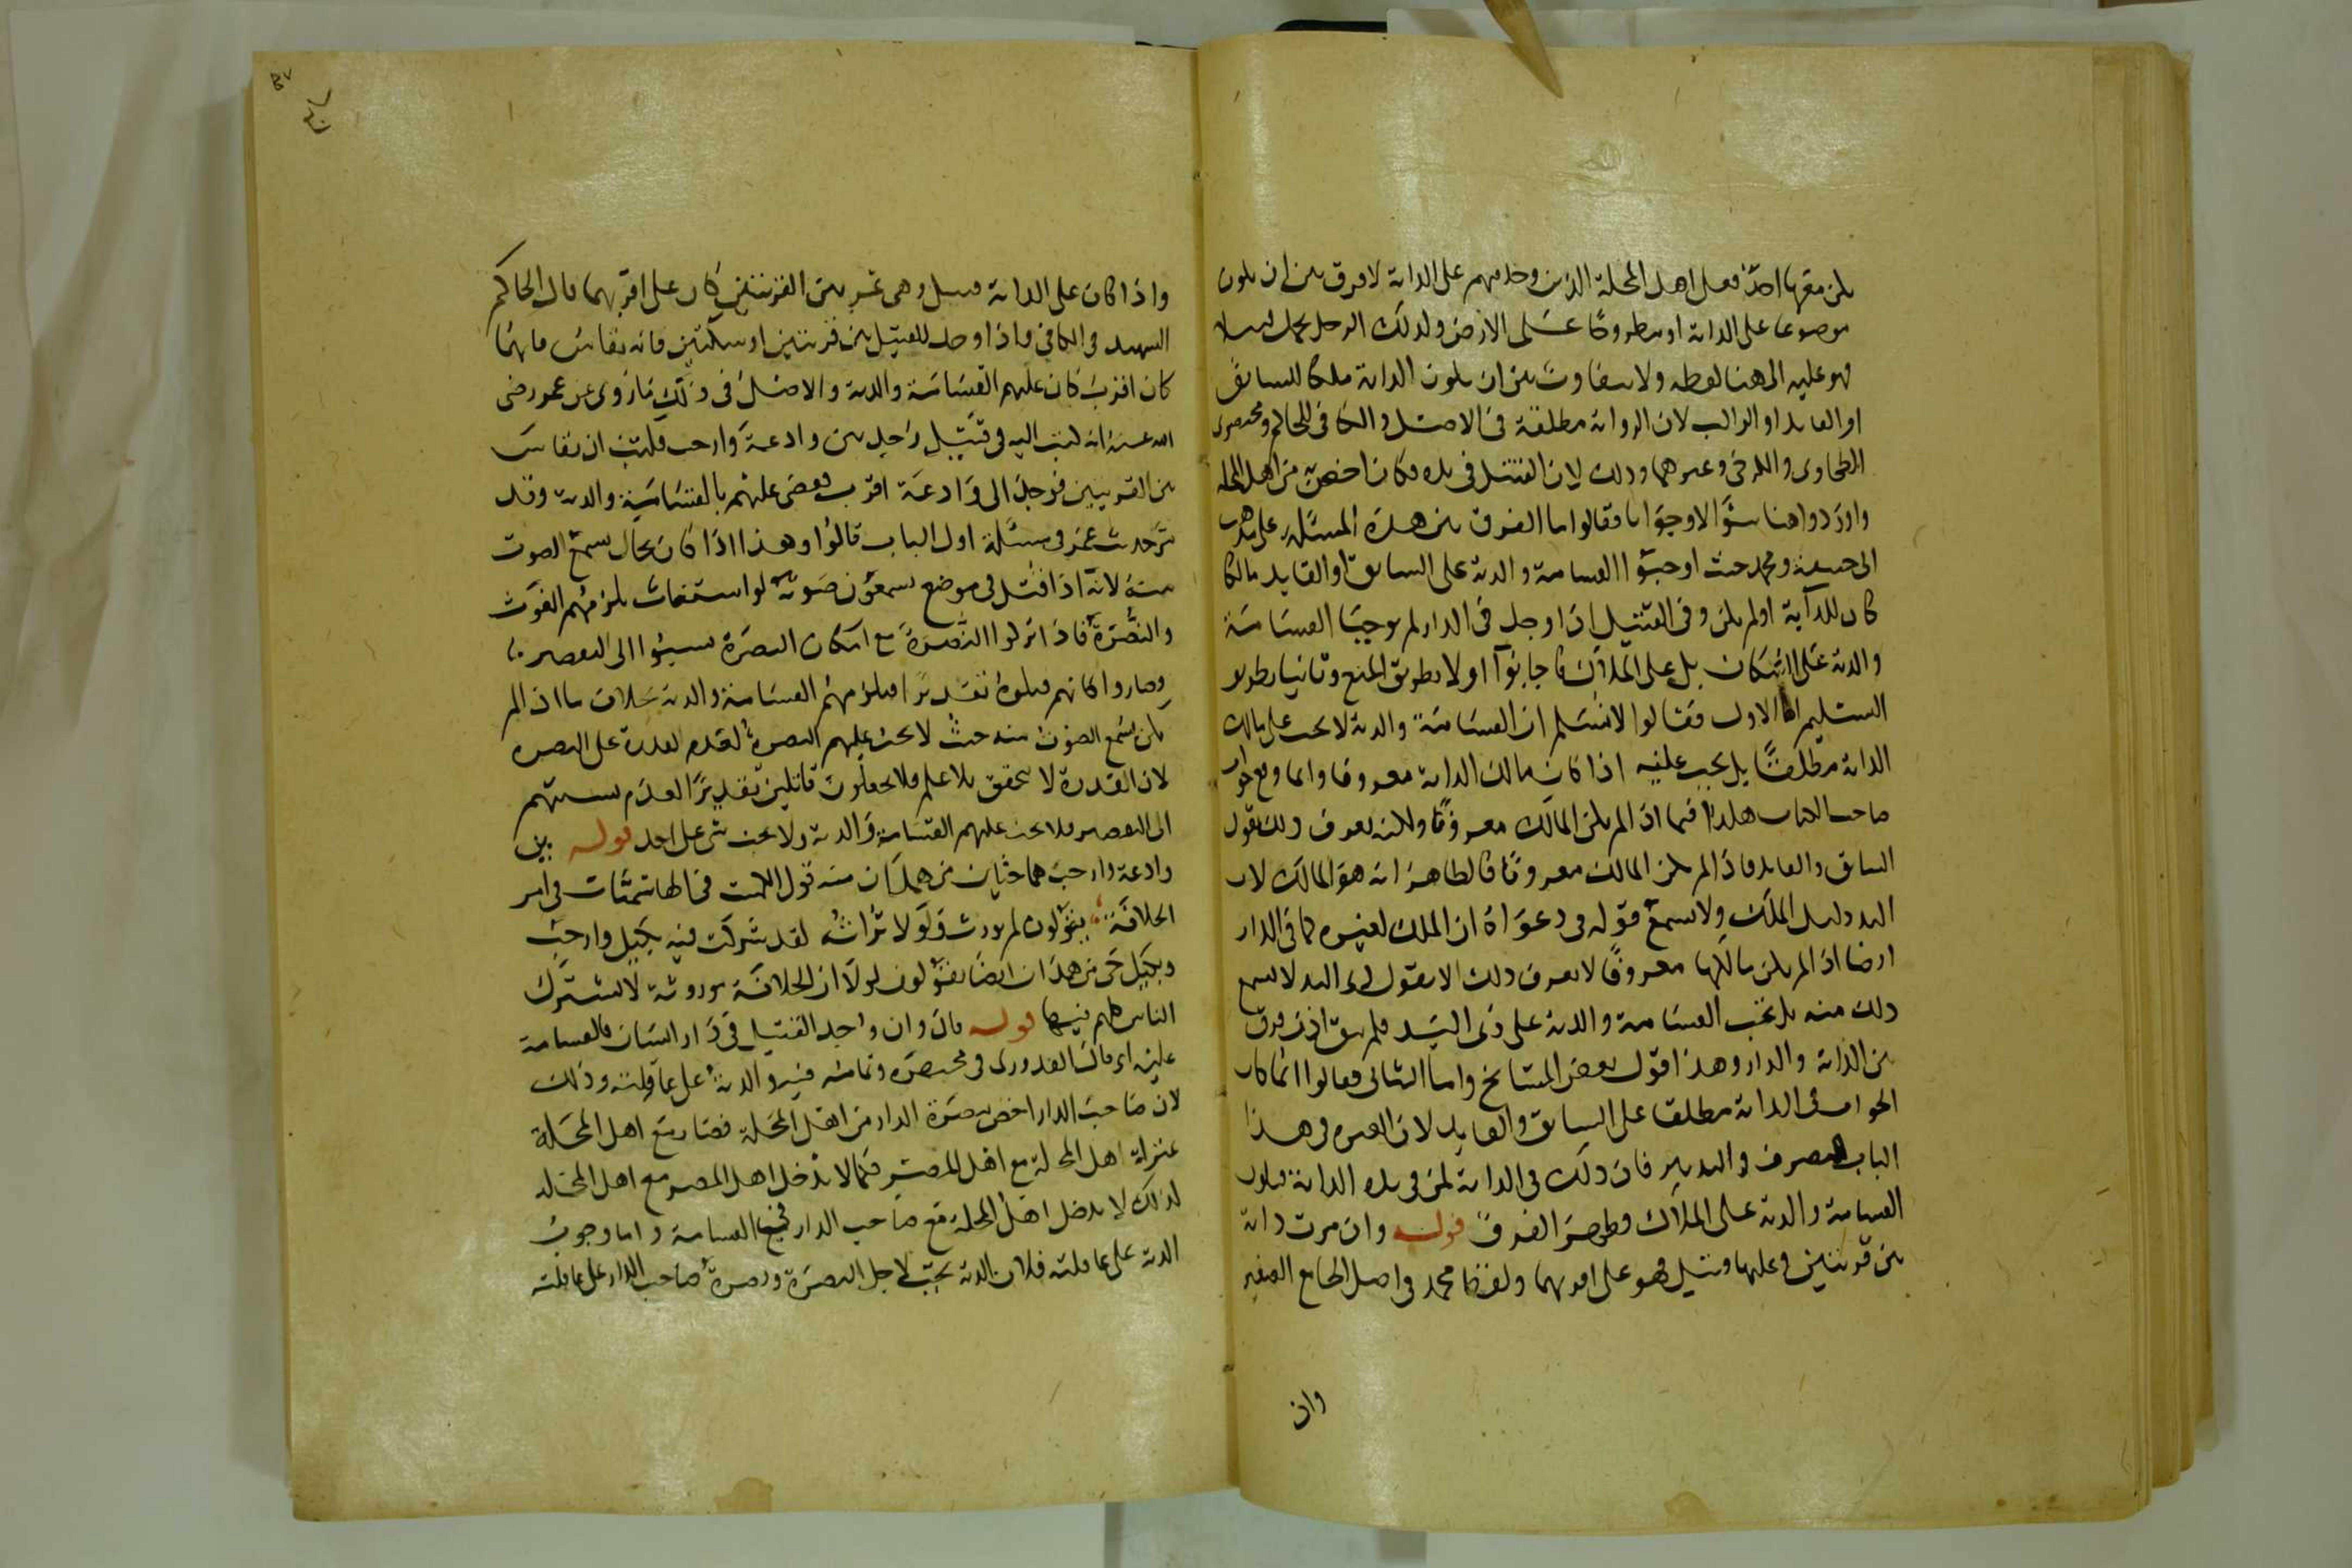 يكن معها احد فعلى اهل المحلة الذين وجد فيهم على الدابة لا فرق بين ان يكون
موضوعا على الدابة او مطروحا على الارض وكذلك الرجل يحمل قتيلا
فهو عليه الى هنا لفظه ولا يتفاوت بين ان يكون الدابة ملكا للسائق
او القايد او الراكب لان الرواية مطلقة في الاصل والكافي للحاكم ومختصرى
الطحاوى والكرخى وغيرهما وذلك لان القتيل في يده فكان اخص به من اهل المحلة
واوردوا هنا سؤالا وجوابا فقالوا ما الفرق بين هذه المسئلة على مذهب
ابى حنيفة ومحمد حيث اوجبوا القسامة والدية على السائق او القايد مالكا
كان للدابة او لم يكن وفى القتيل اذا وجد في الدار لم يوجبا القسامة
والدية على السكان بل على الملاك فاجابوا اولا بطريق المنع وثانيا بطريق
التسليم اما الاول فقالوا لا نسلم ان القسامة والدية لا تجب على مالك
الدابة مطلقا بل يجب عليه اذا كان مالك الدابة معروفا وانما وضع جواب
صاحب الكتاب هكذا فيما اذا لم يكن المالك معروفا ولكنه يعرف ذلك بقول
السائق والقايد فاذا لم يكن المالك معروفا فالظاهر انه هو المالك لان
اليد دليل الملك ولا يسمع قوله في دعواه ان الملك لغيره كما في الدار
ايضا اذا لم يكن مالكها معروفا لا يعرف ذلك الا بقول ذى اليد لا يسمع
ذلك منه بل تجب القسامة والدية على ذى اليد فلم يبق اذن فرق
بين الدابة والدار وهذا قول بعض المشايخ واما الثانى فقالوا انما كان
الجواب في الدابة مطلقا على السائق والقايد لان العبرة في هذا
الباب للتصرف والتدبير فان ذلك في الدابة لمن في يده الدابة فيكون
القسامة والدية على الملاك فظهر الفرق قوله وان مرت دابة
بين قريتين وعليها قتيل فهو على اقربهما ولفظ محمد في اصل الجامع الصغير
وان
واذا كان على الدابة قتيل وهى تمر بين القريتين كان على اقربهما قال الحاكم
الشهيد في الكافى واذا وجد القتيل بين قريتين او سكتين فانه يقاس فايهما
كان اقرب كان عليهم القسامة والدية والاصل في ذلك ما روى عن عمر رضى
الله عنه انه كتب اليه في قتيل وجد بين وادعة وارحب فكتب ان يقاس
بين القريتين فوجد الى وادعة اقرب فقضى عليهم بالقسامة والدية وقد
مر حديث عمر في مسئلة اول الباب قالوا وهذا اذا كان بحال يسمع الصوت
منه لانه اذا قتل في موضع يسمعون صوته لو استغاث يلزمهم الغوث
والنصرة فاذا تركوا النصرة مع امكان النصرة نسبوا الى التقصير
وصاروا كانهم قتلوه تقديرا فيلزمهم القسامة والدية بخلاف ما اذا لم
يكن يسمع الصوت منه حيث لا تجب عليهم النصرة لعدم القدرة على النصرة
لان القدرة لا تتحقق بلا علم فلا يجعلون قاتلين تقديرا لعدم نسبتهم
الى التقصير فلا تجب عليهم القسامة والدية ولا تجب شى على احد قوله بين
وادعة وارحب هما حيان من همدان منه قول الكميت في الهاشميات في امر
الخلافة يقولون لم يورث ولولا تراثه لقد شركت فيه بكيل وارحب
وبكيل حى من همدان ايضا يقولون لولا ان الخلافة موروثة لاشترك
الناس كلهم فيها قوله قال وان وجد القتيل في دار انسان فالقسامة
عليه اى قال القدورى في مختصره وتمامه فيه والدية على عاقلته وذلك
لان صاحب الدار اخص بنصرة الدار من اهل المحلة فصار مع اهل المحلة
بمنزلة اهل المحلة مع اهل المصر فكما لا يدخل اهل المصر مع اهل المحلة
كذلك لا يدخل اهل المحلة مع صاحب الدار في القسامة واما وجوب
الدية على عاقلته فلان الدية تجب لاجل النصرة ونصرة صاحب الدار على عاقلته